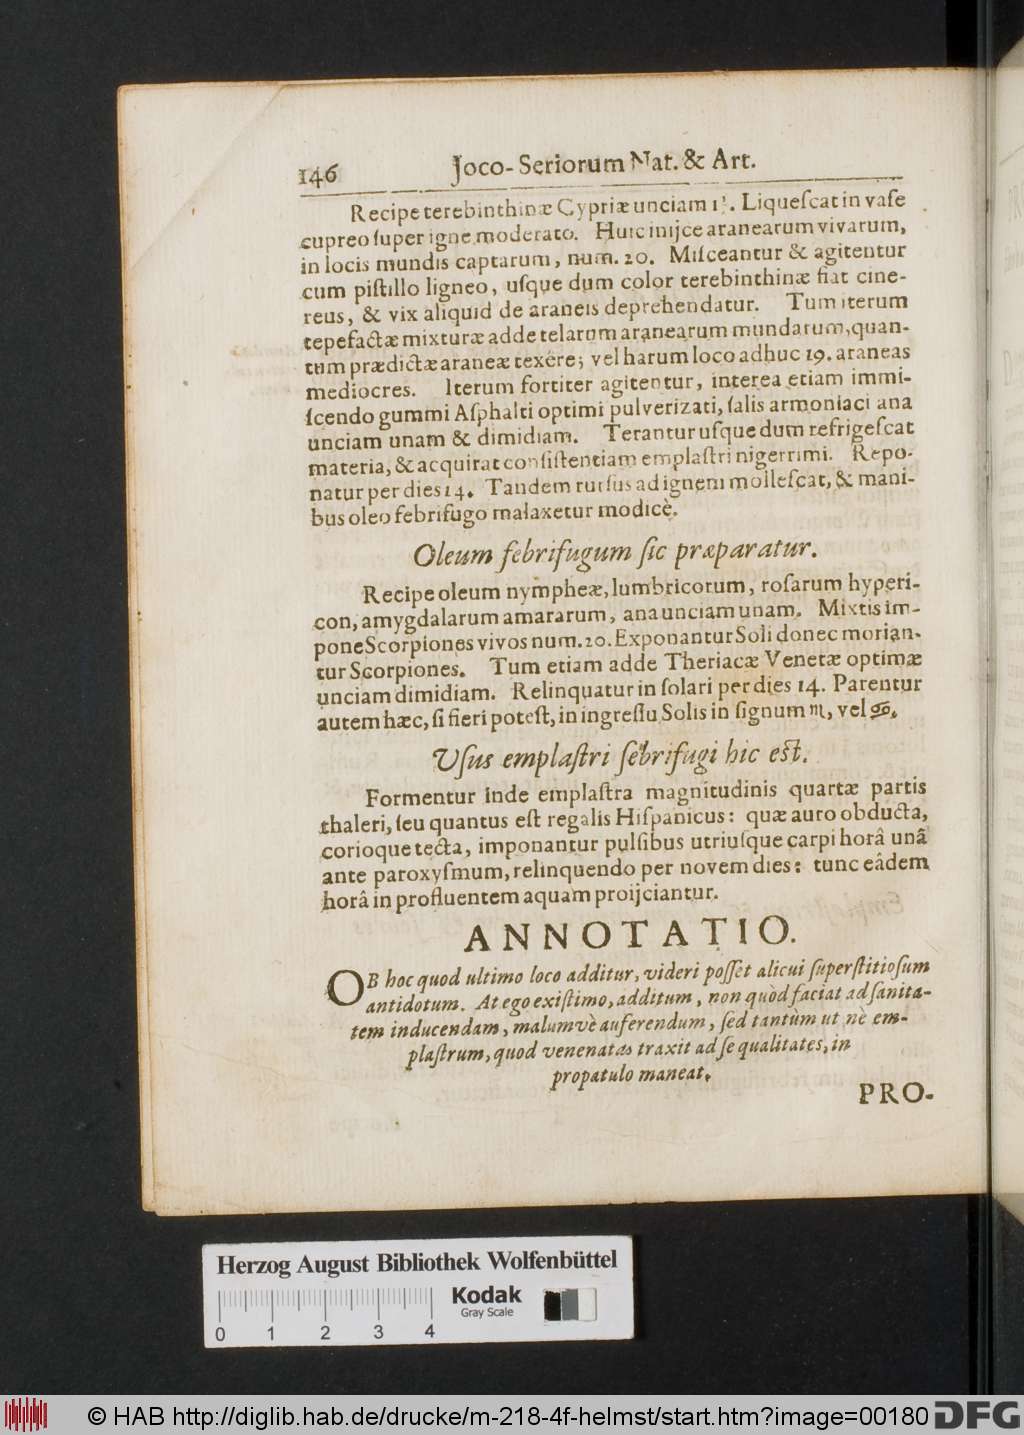 146 Joco-Seriorum Nat. & Art.
Recipe terebinthinæ Cypriæ unciam 1½. Liqueſcat in vaſe
cupreo ſuper igne moderato. Huic inijce aranearum vivarum,
in locis mundis captarum, num. 20. Miſceantur & agitentur
cum piſtillo ligneo, uſque dum color terebinthinæ fiat cine-
reus, & vix aliquid de araneis deprehendatur. Tum iterum
tepefactæ mixturæ adde telarum aranearum mundarum, quan-
tum prædictæ araneæ texére; vel harum loco adhuc 19. araneas
mediocres. Iterum fortiter agitentur, interea etiam immi-
ſcendo gummi Aſphalti optimi pulverizati, ſalis armoniaci ana
unciam unam & dimidiam. Terantur uſque dum refrigeſcat
materia, & acquirat conſiſtentiam emplaſtri nigerrimi. Repo-
natur per dies 14. Tandem rurſus ad ignem molleſcat, & mani-
bus oleo febrifugo malaxetur modicè.
Oleum febrifugum ſic præparatur.
Recipe oleum nympheæ, lumbricorum, roſarum hyperi-
con, amygdalarum amararum, ana unciam unam. Mixtis im-
pone Scorpiones vivos num. 20. Exponantur Soli donec morian-
tur Scorpiones. Tum etiam adde Theriacæ Venetæ optimæ
unciam dimidiam. Relinquatur in ſolari per dies 14. Parentur
autem hæc, ſi fieri poteſt, in ingreſſu Solis in ſignum ♏, vel ♋.
Uſus emplaſtri febrifugi hic eſt.
Formentur inde emplaſtra magnitudinis quartæ partis
thaleri, ſeu quantus eſt regalis Hiſpanicus: quæ auro obducta,
corioque tecta, imponantur pulſibus utriuſque carpi horâ unâ
ante paroxyſmum, relinquendo per novem dies: tunc eâdem
horâ in profluentem aquam proijciantur.
ANNOTATIO.
OB hoc quod ultimo loco additur, videri poſſet alicui ſuperſtitioſum
antidotum. At ego exiſtimo, additum, non quòd faciat ad ſanita-
tem inducendam, malumvè auferendum, ſed tantùm ut nè em-
plaſtrum, quod venenatas traxit ad ſe qualitates, in
propatulo maneat.
PRO-
Herzog August Bibliothek Wolfenbüttel
Kodak
Gray Scale
0 1 2 3 4
© HAB http://diglib.hab.de/drucke/m-218-4f-helmst/start.htm?image=00180 DFG